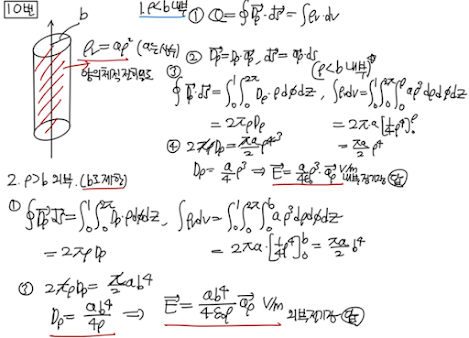 10번
b
ρv = aρ² (a는 상수)
1. ρ<b 내부
① Q = ∮D̅ρ·ds̅ = ∫ρv·dv
② D̅ρ = Dρ·a̅ρ, ds̅ = a̅ρ·ds
(ρ<b 내부)
③
∮D̅·ds̅ = ∫₀¹∫₀²π Dρ·ρdφdz, ∫ρvdv = ∫₀¹∫₀²π∫₀ρ aρ³dρdφdz
= 2πρDρ = 2πa[¼ρ⁴]₀ρ
④ 2πρDρ = πa/2 ρ⁴³ = πa/2 ρ⁴
Dρ = a/4 ρ³ ⇒ E̅ = a/4ε₀ ρ³·a̅ρ V/m 내부전기장 답
2. ρ>b 외부. (b로 제한)
① ∮D̅ρ·ds̅ = ∫₀¹∫₀²π Dρ·ρdφdz, ∫ρvdv = ∫₀¹∫₀²π∫₀b aρ³dρdφdz
= 2πρDρ = 2πa·[¼ρ⁴]₀b = πa/2 b⁴
② 2πρDρ = π/2 ab⁴
Dρ = ab⁴/4ρ ⇒ E̅ = ab⁴/4·ε₀ρ a̅ρ V/m 외부전기장 답